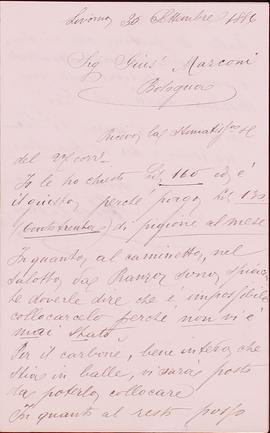 Livorno 30 Settembre 1886
Sig Gius. Marconi
Bologna
Ricevo la stimatissa
del corr.
Io le ho chiesto Lit 160 ed è
il giusto, perchè pago Lit 130
(centotrenta) di pigione al mese
In quanto al caminetto, nel
salotto da Pranzo sono spiacte
te doverle dire che è impossibile
collocarcelo perchè non vi è
mai stato
Per il carbone, bene inteso che
stia in balle, vi sarà posto
da poterlo collocare
In quanto al resto posso